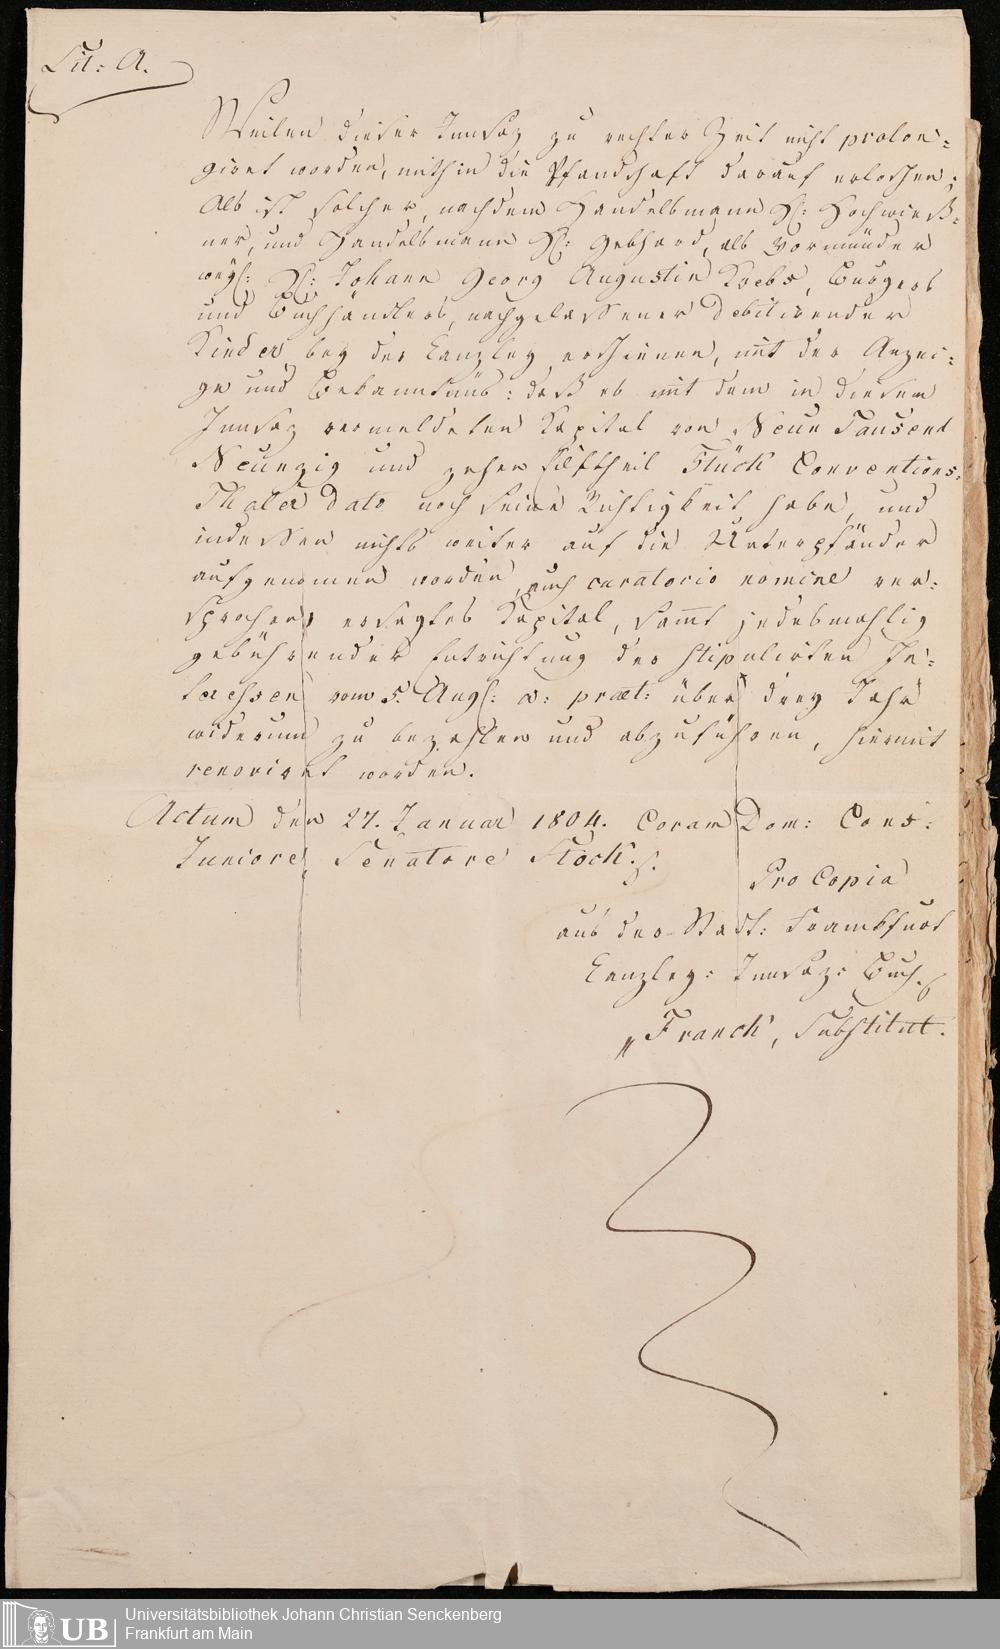 Lit: A.
Weilen dieser Innsaz zu rechter Zeit nicht prolon=
giret worden, mithin die Pfandschaft darauf erloschen;
Als ist solcher, nachdem Handelsmann H: Hochwies=
ner, und Handelsmann H: Gebhard, als Vormünder
weyl: H: Johann Georg Augustin Krebs, Burgers
und Buchhändlers, nachgelassener debitirender
Kinder bey der Canzley erschienen, mit der Anzei=
ge und Bekanntnus: daß es mit dem in diesem
Innsaz vermeldeten Capital von Neun Tausend
Neunzig und zehen Eilftheil Stück Conventions=
Thaler dato noch seine Richtigkeit habe, und
indessen nichts weiter auf die Unterpfänder
aufgenomen worden, auch curatorio nomine ver=
sprochen, ersagtes Capital, samt jedesmahlig
gebührender Entrichtung der stipulirten In=
teressen vom 5. Aug: a: præt: über drey Jahr
widerum zu bezahlen und abzuführen, hiermit
renoviret worden.
Actum den 27. Januar 1804. Coram Dom: Cons:
Juniore Senatore Stock.
Pro Copia
aus der Stadt: Frankfurt
Canzley: Innsaz: Buch.
Franck, Substitut.
UB
Universitätsbibliothek Johann Christian Senckenberg
Frankfurt am Main